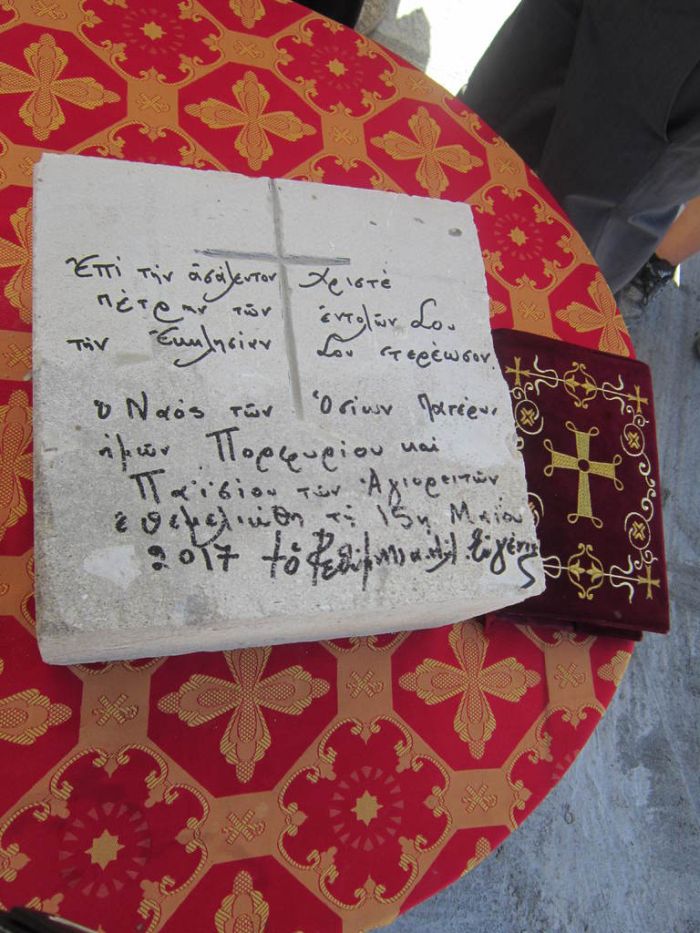 Ἐπί τήν ἀσάλευτον Χριστέ
πέτραν τῶν ἐντολῶν Σου
τήν Ἐκκλησίαν Σου στερέωσον.
ὁ Ναός τῶν Ὁσίων Πατέρων
ἡμῶν Πορφυρίου καί
Παϊσίου τῶν Ἁγιορειτῶν
ἐθεμελιώθη τῇ 15ῃ Μαΐου
2017 † ὁ Ρεθύμνης Εὐγένιος